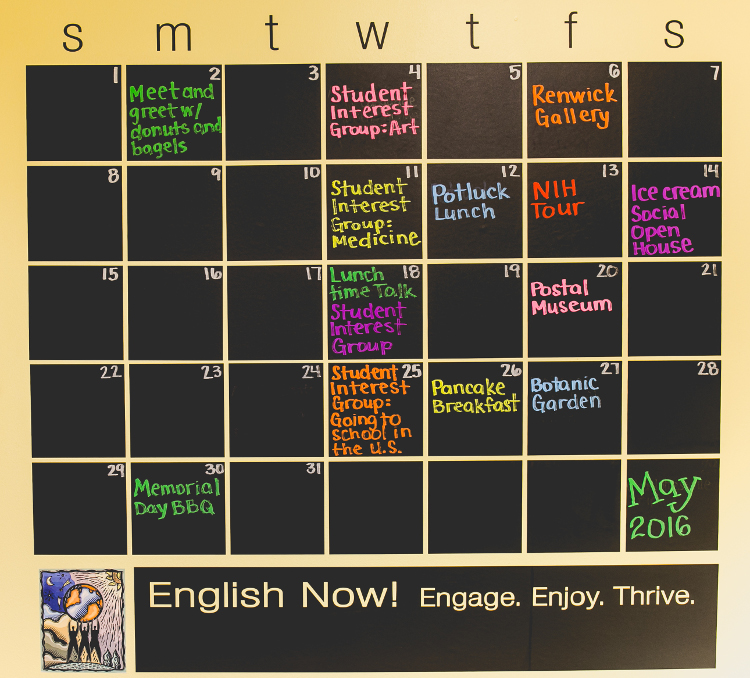 s m t w t f s
1 2 3 4 5 6 7
Meet and
greet w/
donuts and
bagels
Student
Interest
Group: Art
Renwick
Gallery
8 9 10 11 12 13 14
Student
Interest
Group:
Medicine
Potluck
Lunch
NIH
Tour
Ice cream
Social
Open
House
15 16 17 18 19 20 21
Lunch
time Talk
Student
Interest
Group
Postal
Museum
22 23 24 25 26 27 28
Student
Interest
Group:
Going to
school in
the U.S.
Pancake
Breakfast
Botanic
Garden
29 30 31
Memorial
Day BBQ
May
2016
English Now! Engage. Enjoy. Thrive.